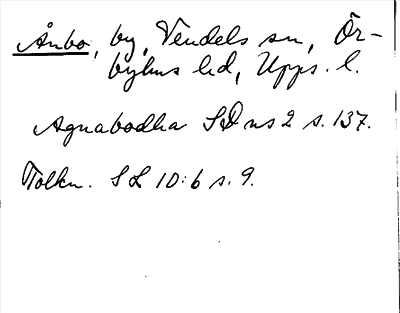 Ånbo, by, Vendels sn, Ör-
byhus hd, Upps. l.
Agnabodha SD ns 2 s. 137.
Tolkn. SL 10:6 s. 9.